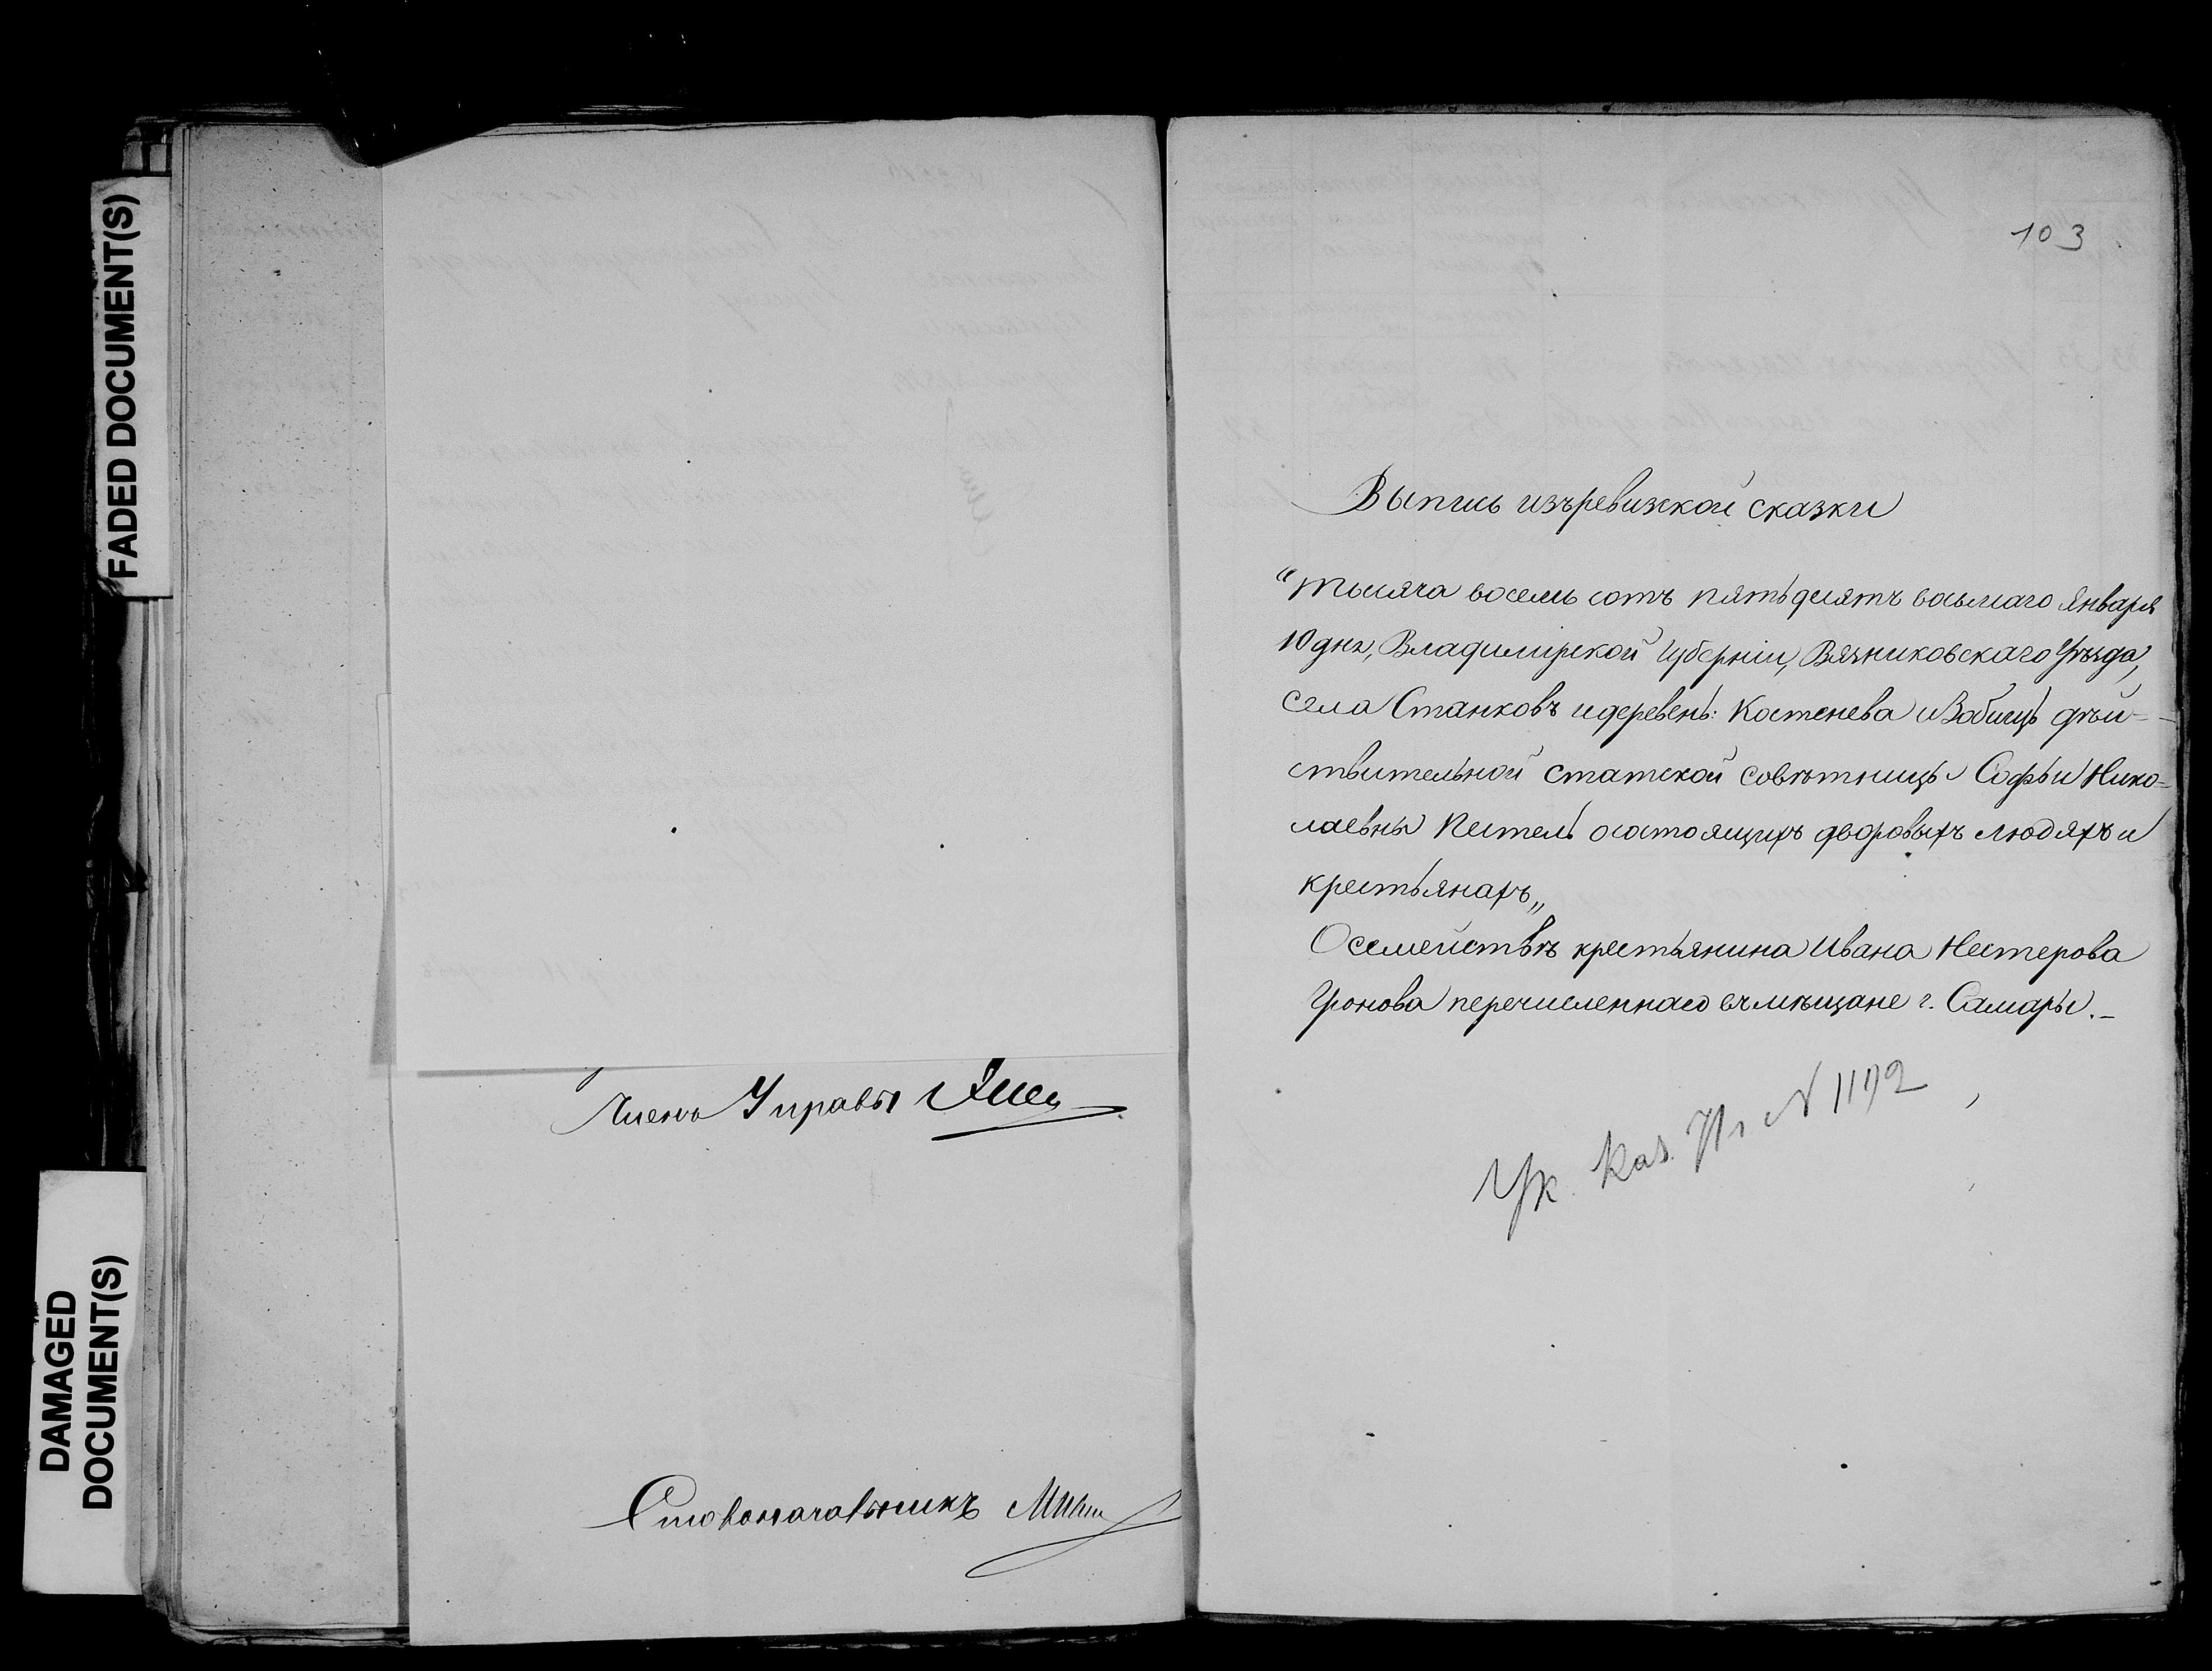 FADED DOCUMENT(S)
DAMAGED
DOCUMENT(S)
Членъ Управы
Столоначальникъ
103
Выпись изъ ревизской сказки
"Тысяча восемь сотъ пятьдесятъ восьмаго Января
10 дня, Владимірской Губерніи, Вязниковскаго Уѣзда,
села Станковъ и деревень: Костенева и Вобицъ дѣй-
ствительной статской совѣтницы Софьи Нико-
лаевны Пестель о состоящихъ дворовыхъ людяхъ и
крестьянахъ„
О семействѣ крестьянина Ивана Нестерова
перечисленнаго въ мѣщане г. Самары.-
Ук. Каз. № 1192